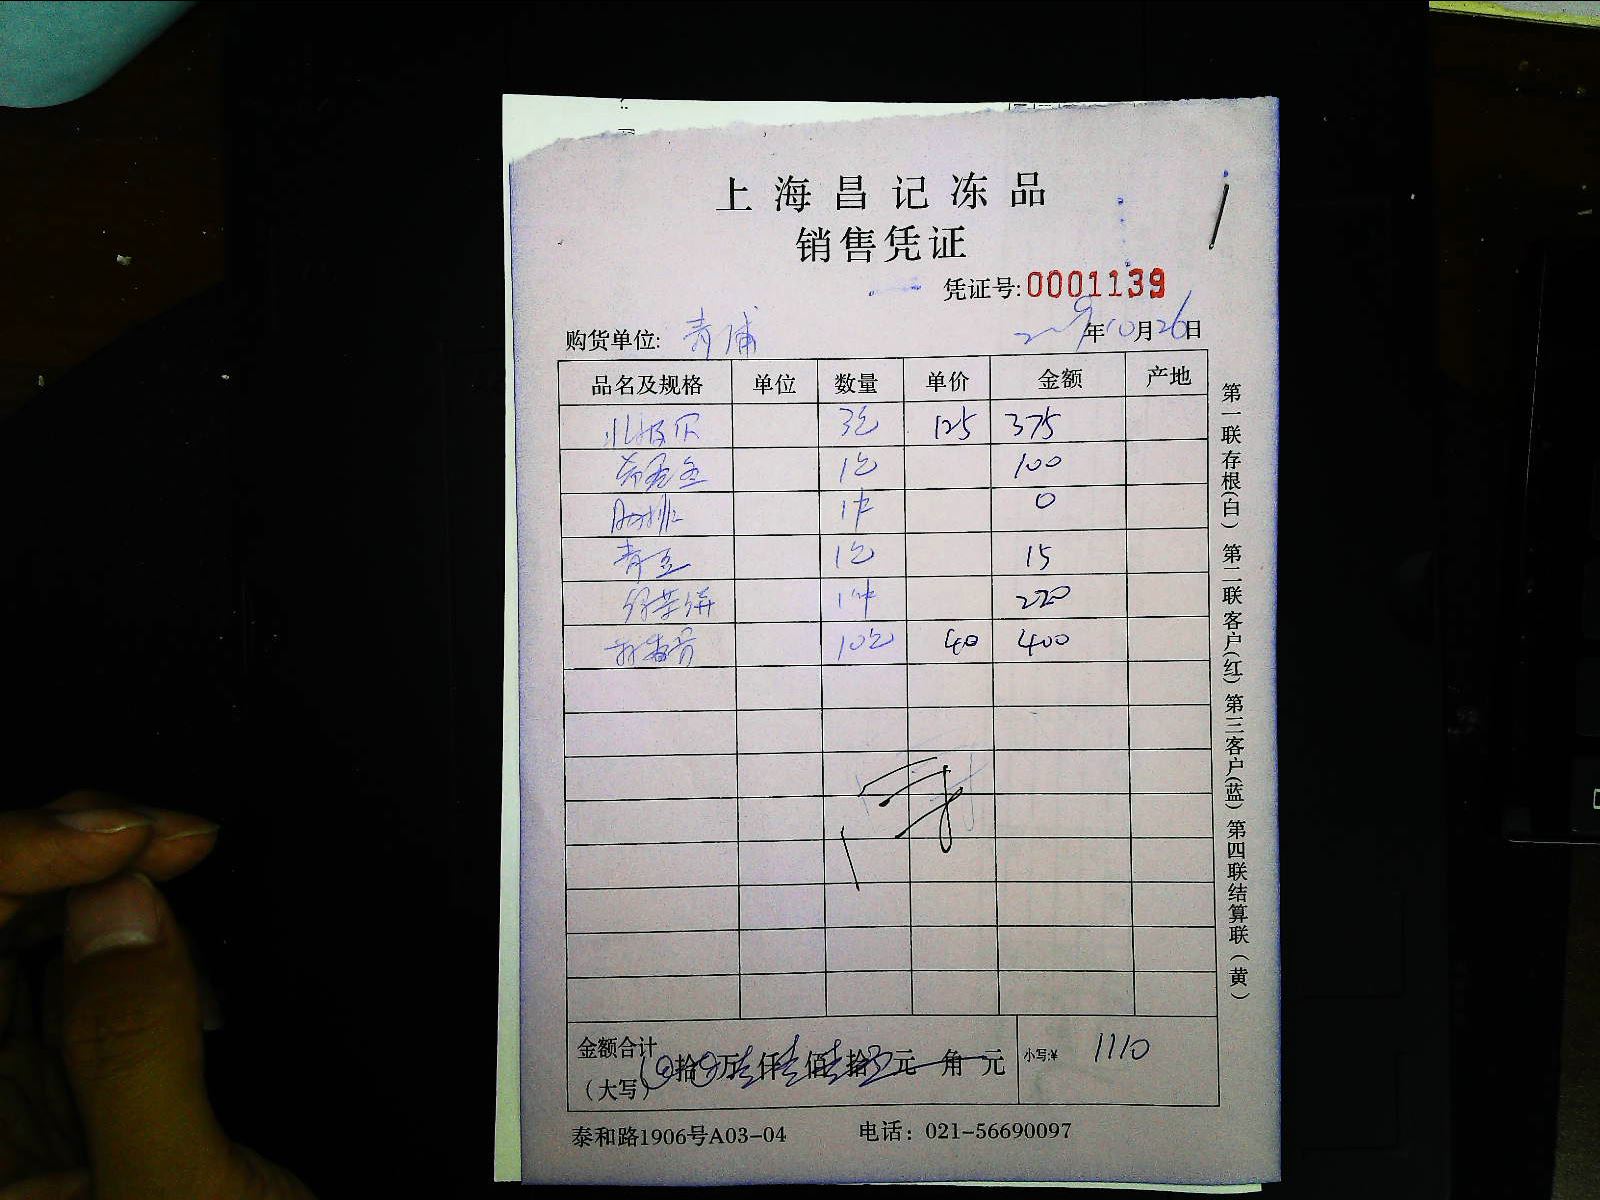 上海昌记冻品
销售凭证
凭证号:0001139
购货单位: 青浦 2009年10月26日
品名及规格 单位 数量 单价 金额 产地
北极贝 3包 125 375
希鲮鱼 1包 100
肋排 1件 0
青豆 1包 15
1件 220
10包 40 400
金额合计
(大写) 0拾0万壹仟壹佰壹拾 元 角 元 小写:¥ 1110
泰和路1906号A03-04 电话: 021-56690097
第一联存根(白) 第二联客户(红) 第三客户(蓝) 第四联结算联(黄)